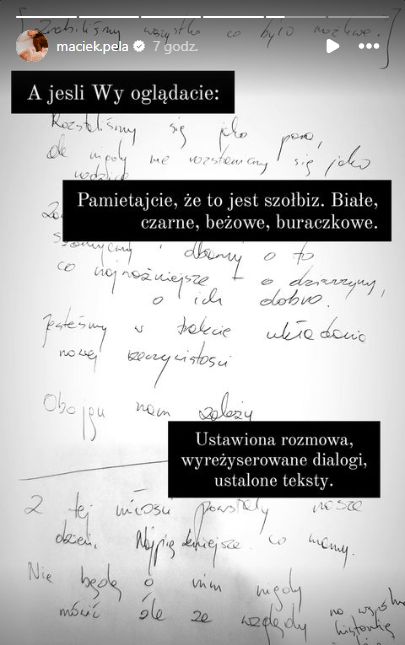 Zrobiliśmy wszystko co było możliwe.
maciek.pela 7 godz.
A jesli Wy oglądacie:
Rozstaliśmy się jako para,
ale nigdy nie rozstaniemy się jako
Pamietajcie, że to jest szołbiz. Białe,
czarne, beżowe, buraczkowe.
i dbamy o to
co najważniejsze – o dziewczyny,
o ich dobro.
Jesteśmy w trakcie układania
nowej rzeczywistości
Obojgu nam zależy
Ustawiona rozmowa,
wyreżyserowane dialogi,
ustalone teksty.
Z tej miłości powstały nasze
dzieci. Najpiękniejsze co mamy.
Nie będę o nim nigdy
mówić źle ze względu na wspólną
historię